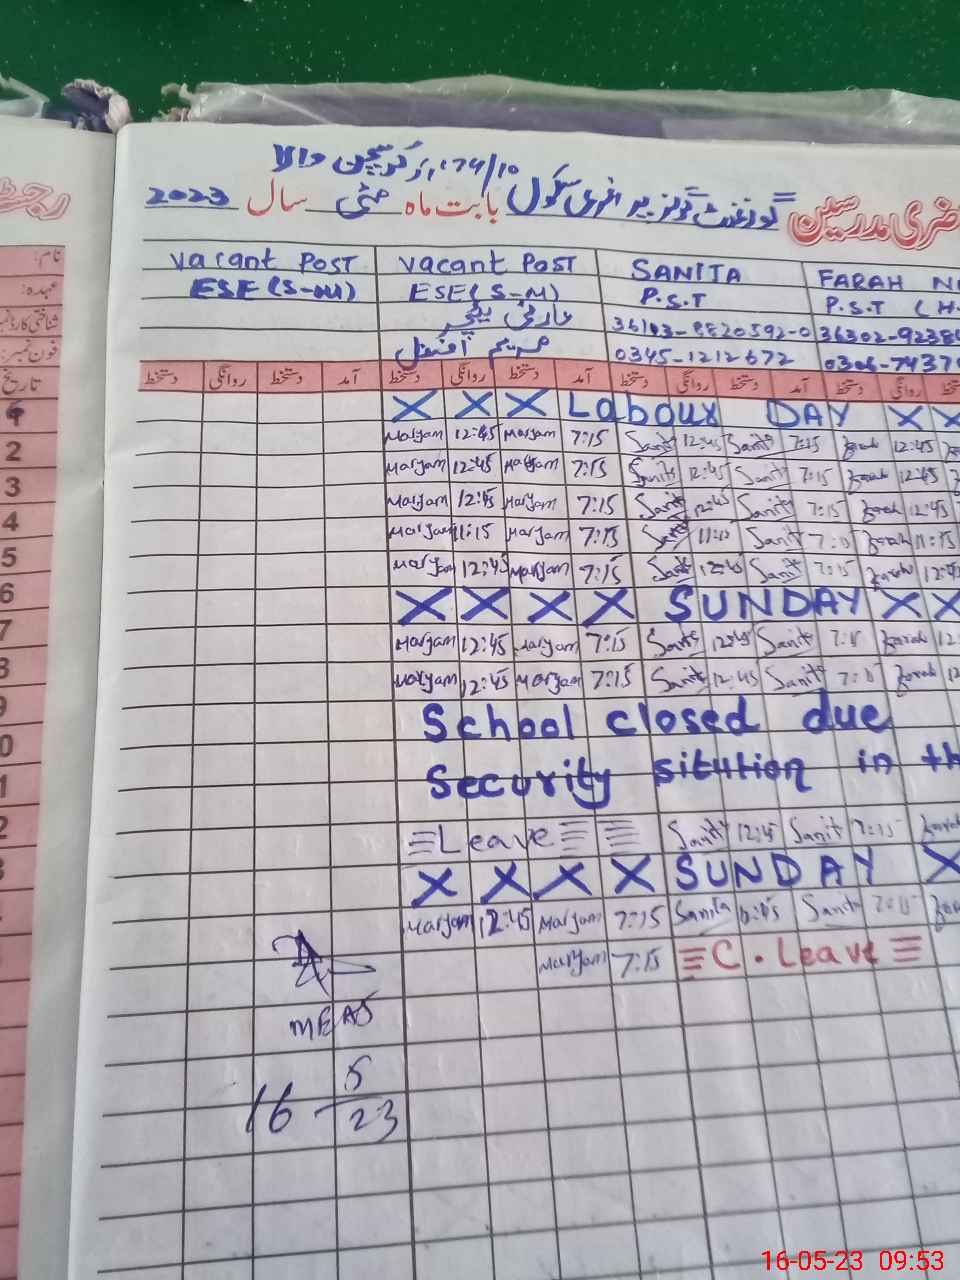 گورنمنٹ گرلز پرائمری سکول 174/10.R کرسچن والا
حاضری مدرسین
بابت ماہ مئی سال 2023
رجسٹر
Vacant POST Vacant POST SANITA FARAH
ESE (S-M) ESE (S-M) P.S.T P.S.T (H.
عارضی ٹیچر
مریم افضل 0345-1212672
نام:
عہدہ:
شناختی کارڈ
فون نمبر:
تاریخ
دستخط روانگی دستخط آمد دستخط روانگی دستخط آمد دستخط روانگی دستخط آمد دستخط روانگی دستخط
X X X Labour DAY X X
2 Maryam 12:45 Maryam 7:15 Sanita 12:45 Sanita 7:15 Farah 12:45
3 Maryam 12:45 Maryam 7:15 Sanita 12:45 Sanita 7:15 Farah 12:45
4 Maryam 12:45 Maryam 7:15 Sanita 12:45 Sanita 7:15 Farah 12:45
5 Maryam 11:15 Maryam 7:15 Sanita Sanita Farah 11:15
6 Maryam 12:45 Maryam 7:15 Sanita 12:45 Sanita 7:15 Farah
7 X X X X SUNDAY X X
8 Maryam 12:45 Maryam 7:15 Sanita 12:45 Sanita Farah
9 Maryam 12:45 Maryam 7:15 Sanita 12:45 Sanita Farah
School closed due
Security sitution in th
Leave Sanita 12:45 Sanita 7:15 Farah
X X X X SUNDAY X
Maryam 12:45 Maryam 7:15 Sanita Sanita
Maryam 7:15 C. Leave
MEA
16 5/23
16-05-23 09:53